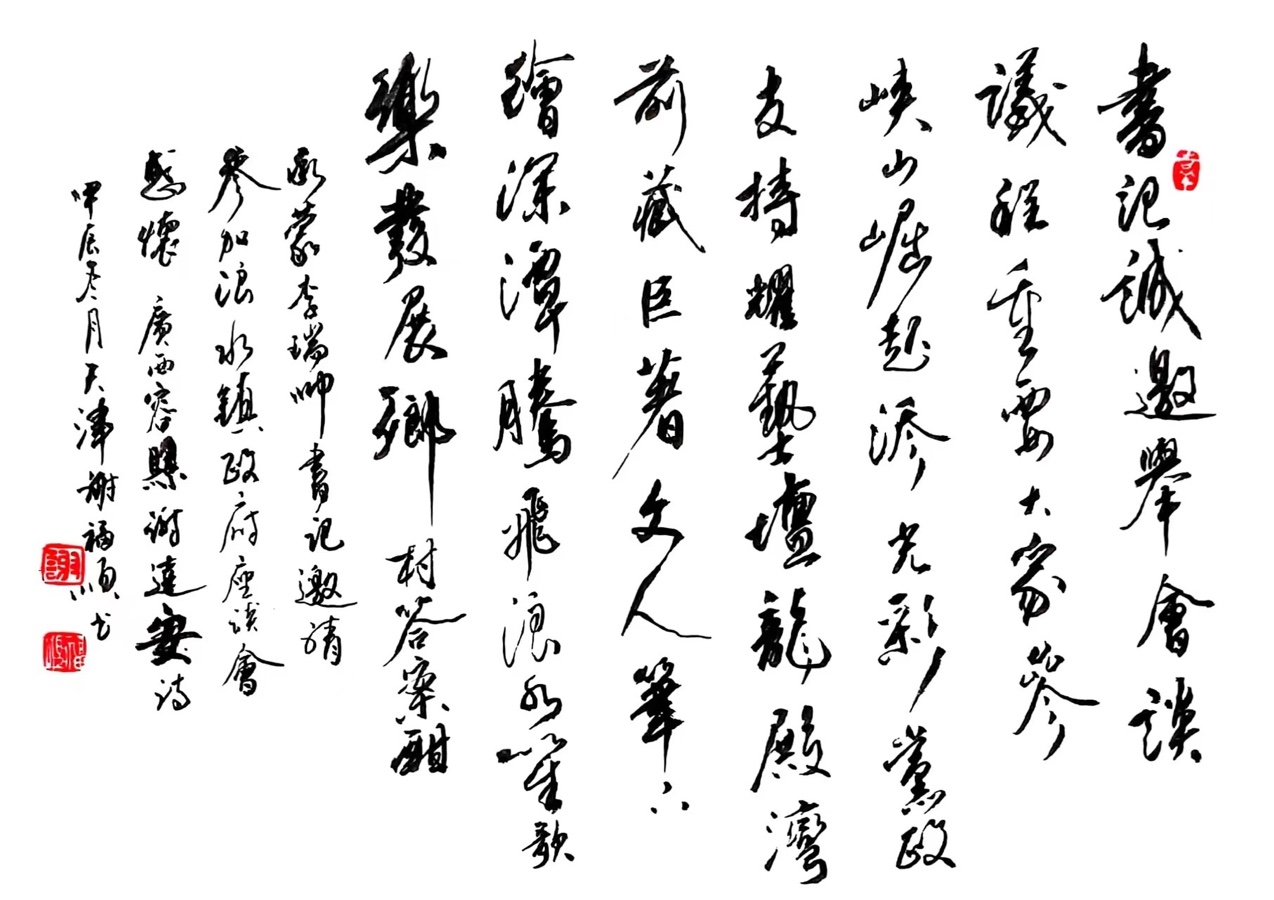 書記誠邀舉會談
議程重要大家參
峽山崛起添光彩黨政
支持耀藝壇龍殿灣
前藏巨著文人筆下
繪深潭騰飛浪水笙歌
樂發展鄉村答案酣
承蒙李瑞帥書記邀請
參加浪水鎮政府座談會
感懷 廣西容縣謝達安詩
甲辰冬月天津謝福順書